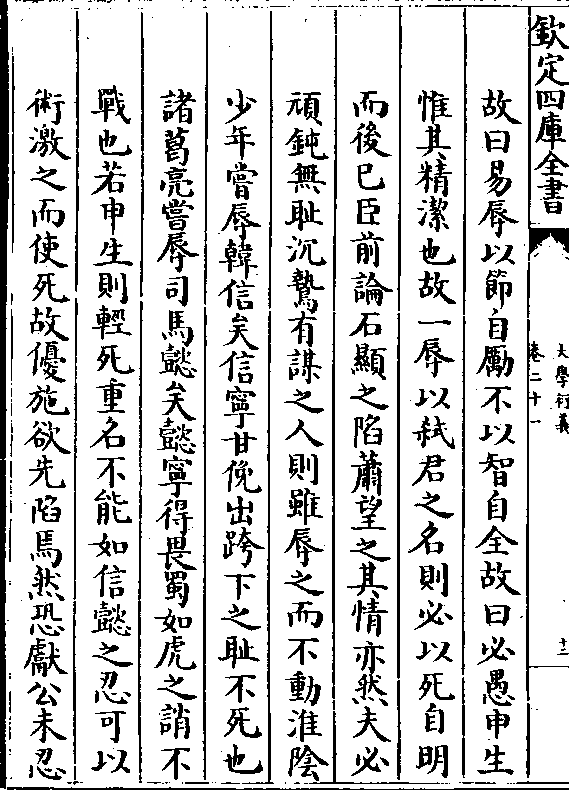 欽定四庫全書
大學衍義
卷二十一
十二
故曰易辱以節自勵不以智自全故曰必愚申生
惟其精潔也故一辱以弑君之名則必以死自明
而後已臣前論石顯之陷蕭望之其情亦然夫必
頑鈍無耻沉鷙有謀之人則雖辱之而不動淮陰
少年嘗辱韓信矣信寧甘俛出跨下之耻不死也
諸葛亮嘗辱司馬懿矣懿寧得畏蜀如虎之誚不
戰也若申生則輕死重名不能如信懿之忍可以
術激之而使死故優施欲先陷焉然恐獻公未忍